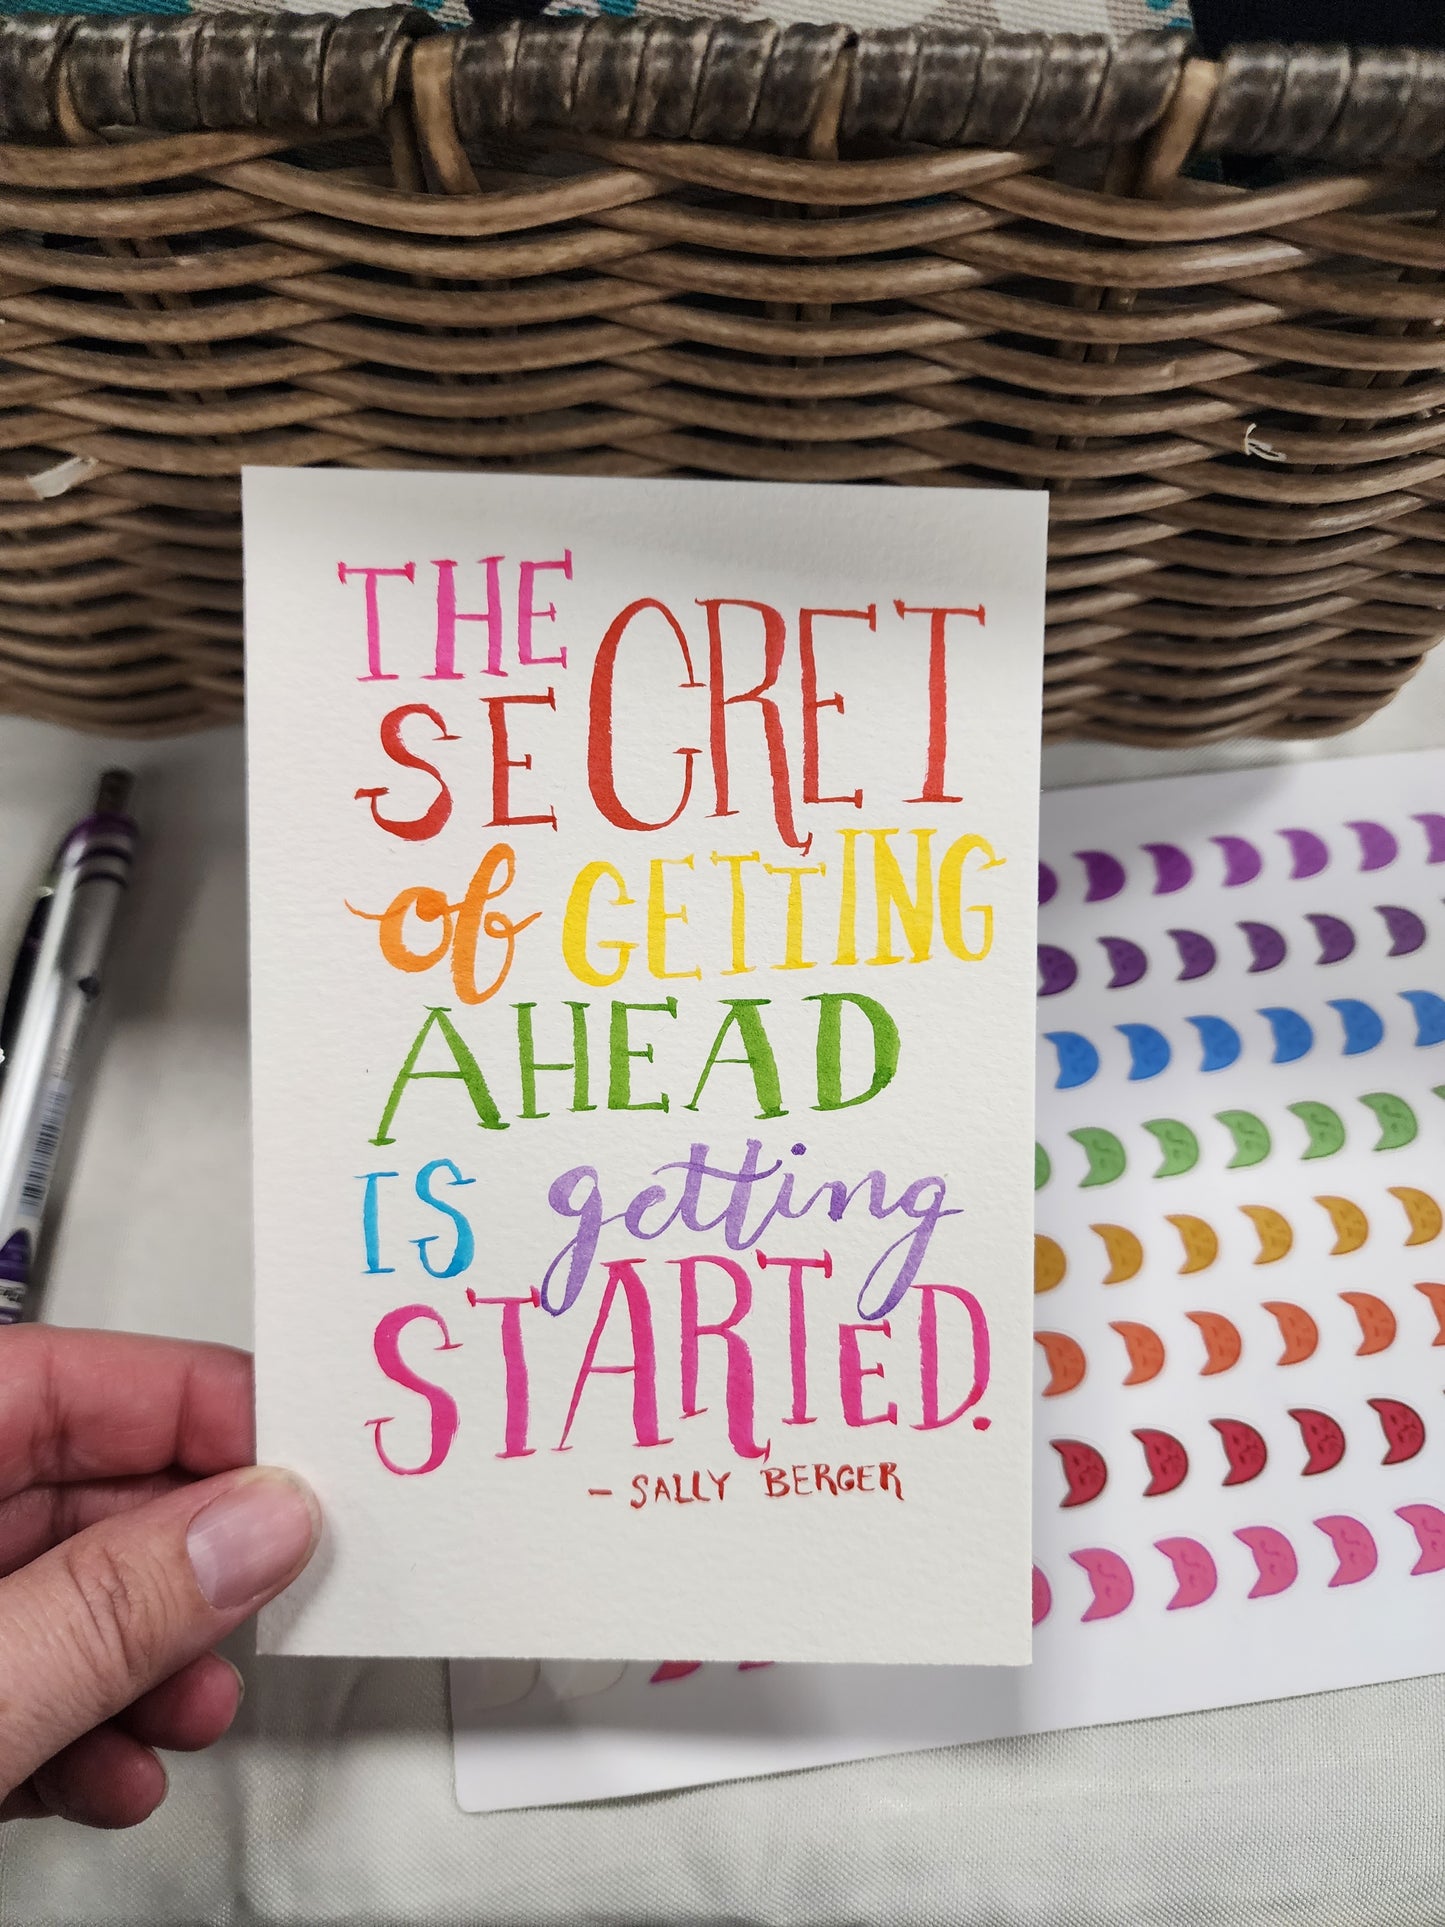 THE
SECRET
of GETTING
AHEAD
IS getting
STARTED.
- SALLY BERGER